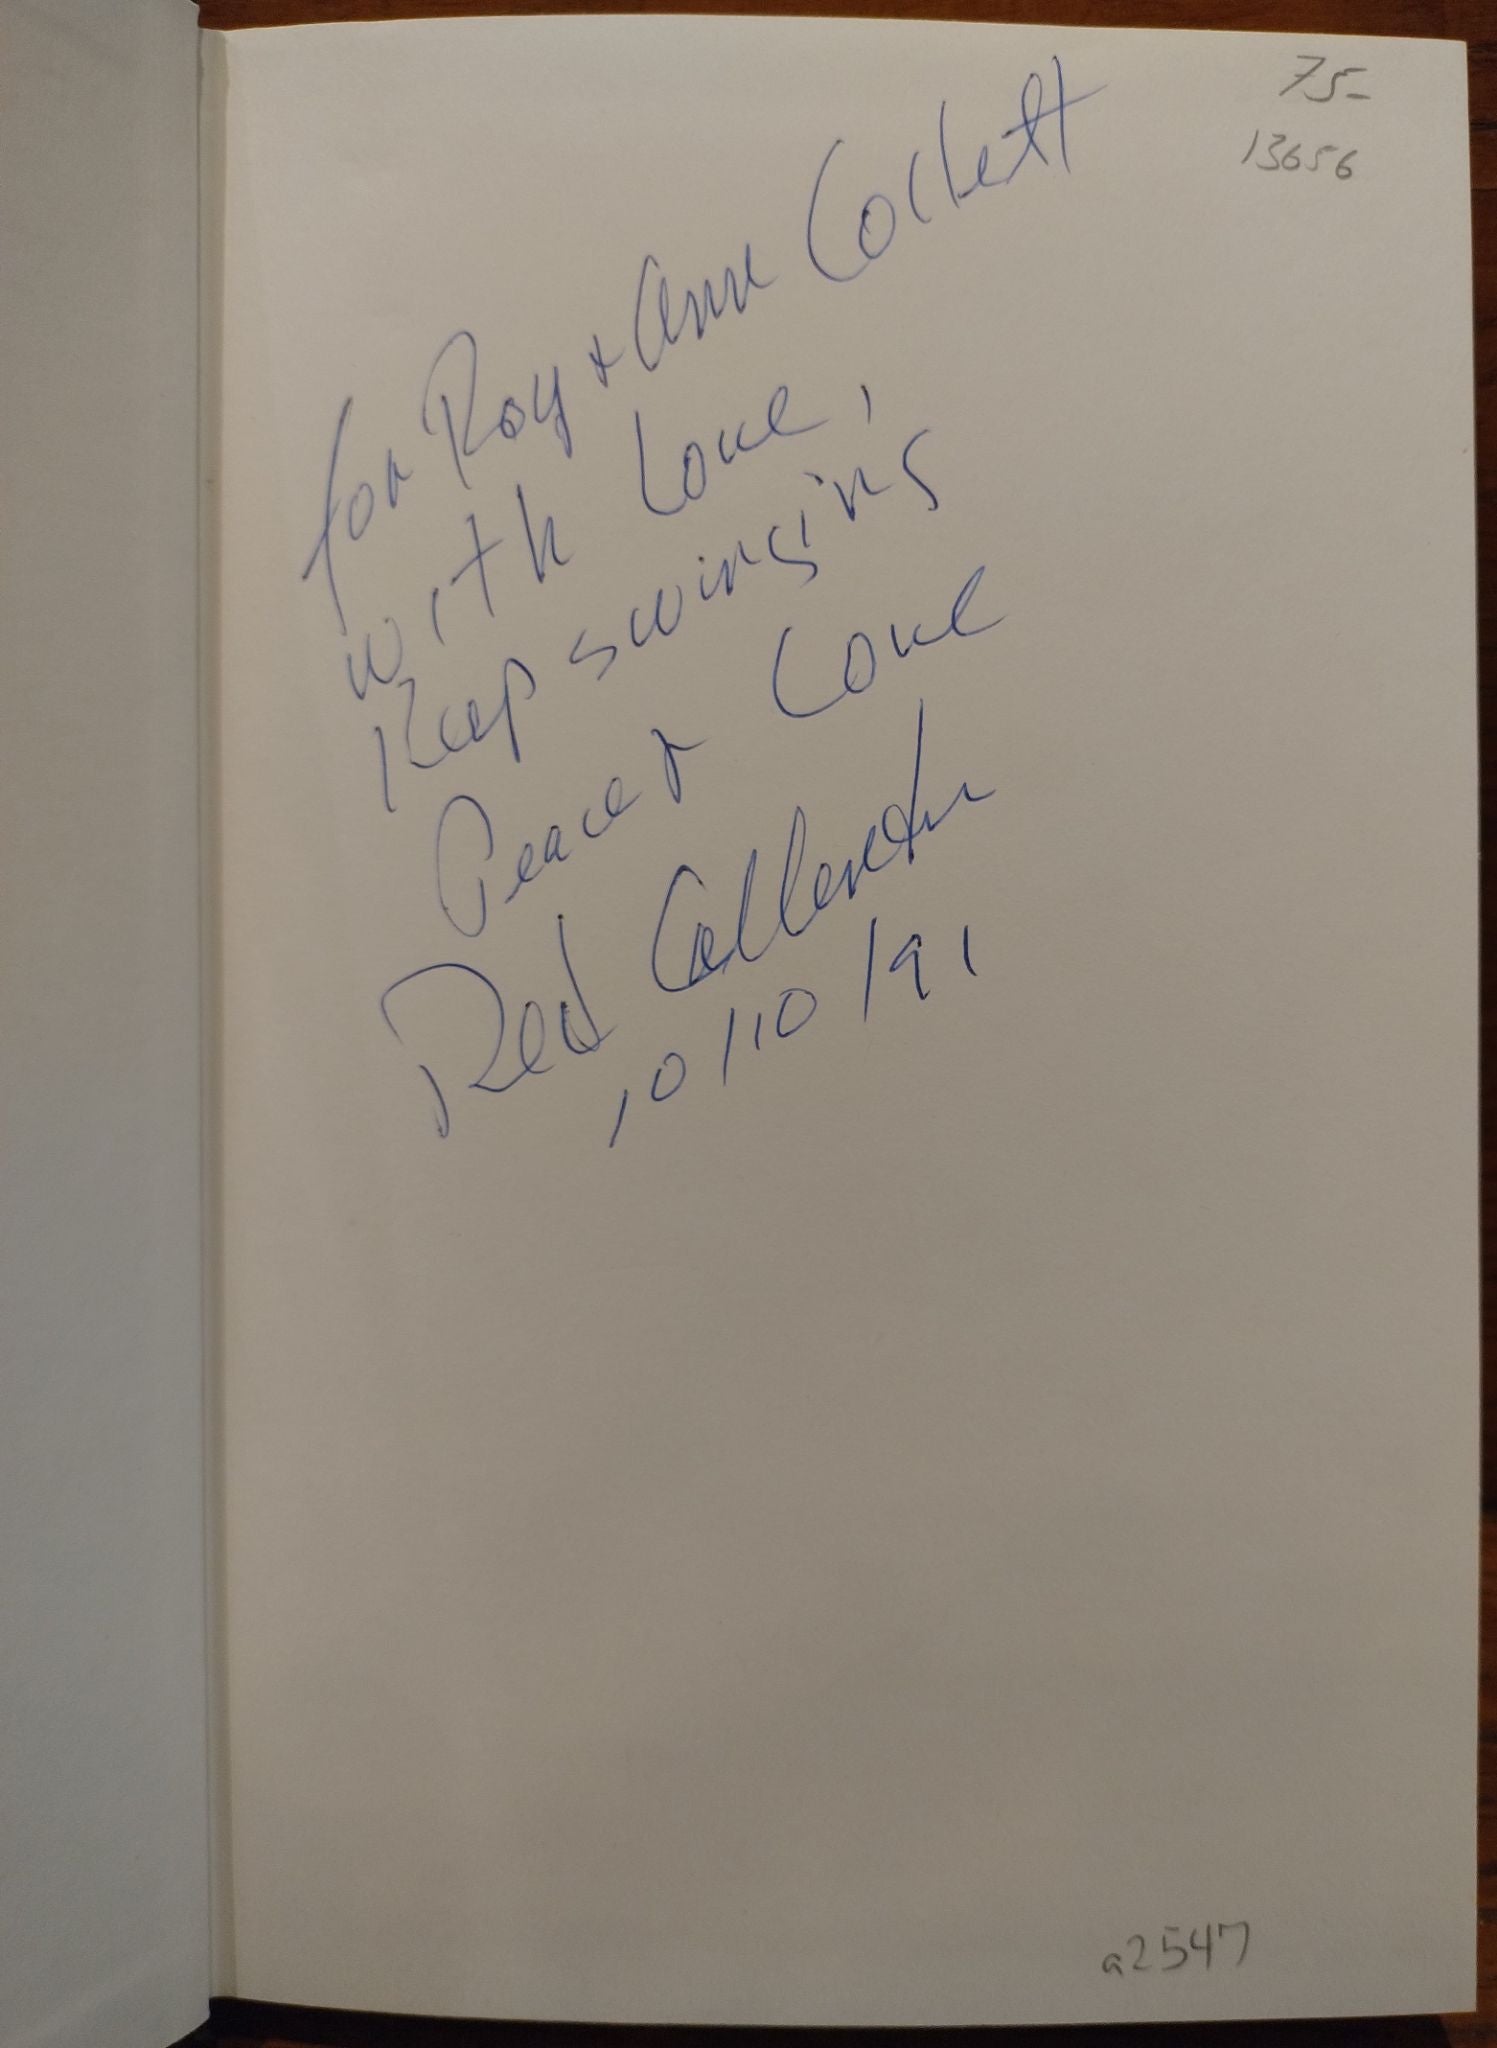 75-
13656
for Roy + Ann Cockett
with Love,
Keep swinging
Peace & Love
Red Callender
10/10/91
a2547